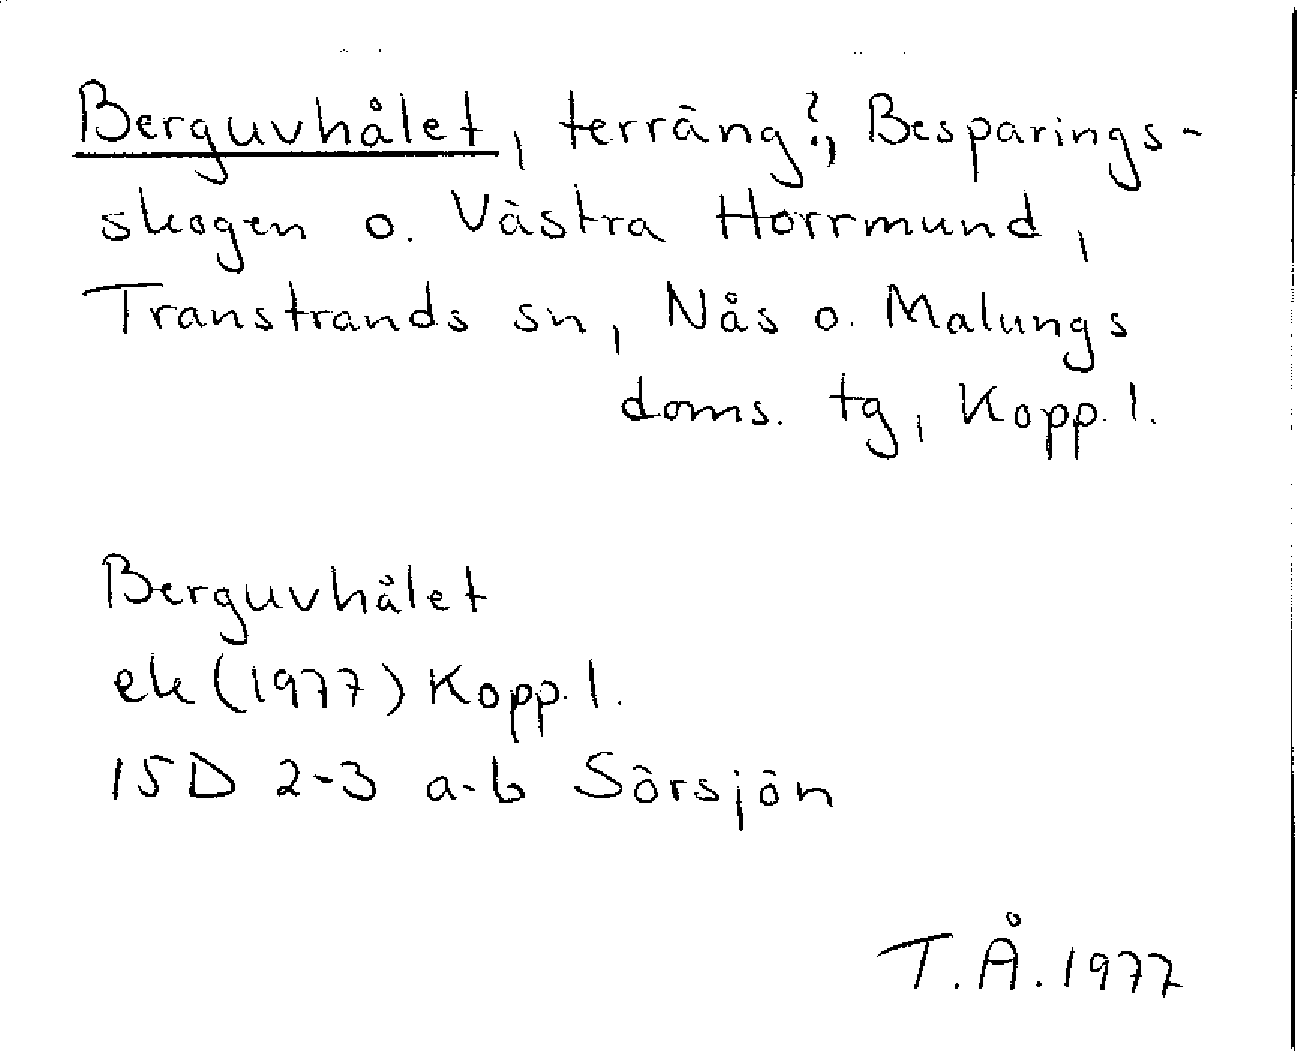 Berguvhålet, terräng?, Besparings-
skogen o. Västra Horrmund,
Transtrands sn, Nås o. Malungs
doms. tg, Kopp. l.
Berguvhålet
ek (1977) Kopp. l.
15D 2-3 a-b Sörsjön
T.Å. 1977